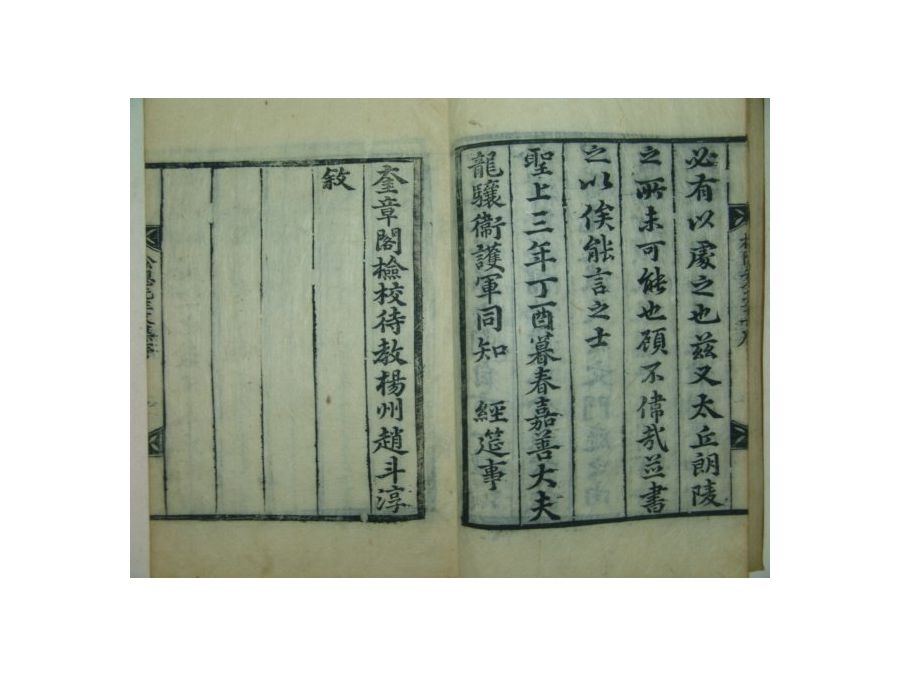 必有以處之也玆又太丘朗陵
之所未可能也顧不偉哉並書
之以俟能言之士
聖上三年丁酉暮春嘉善大夫
龍驤衛護軍同知 經筵事
奎章閣檢校待敎楊州趙斗淳
敘